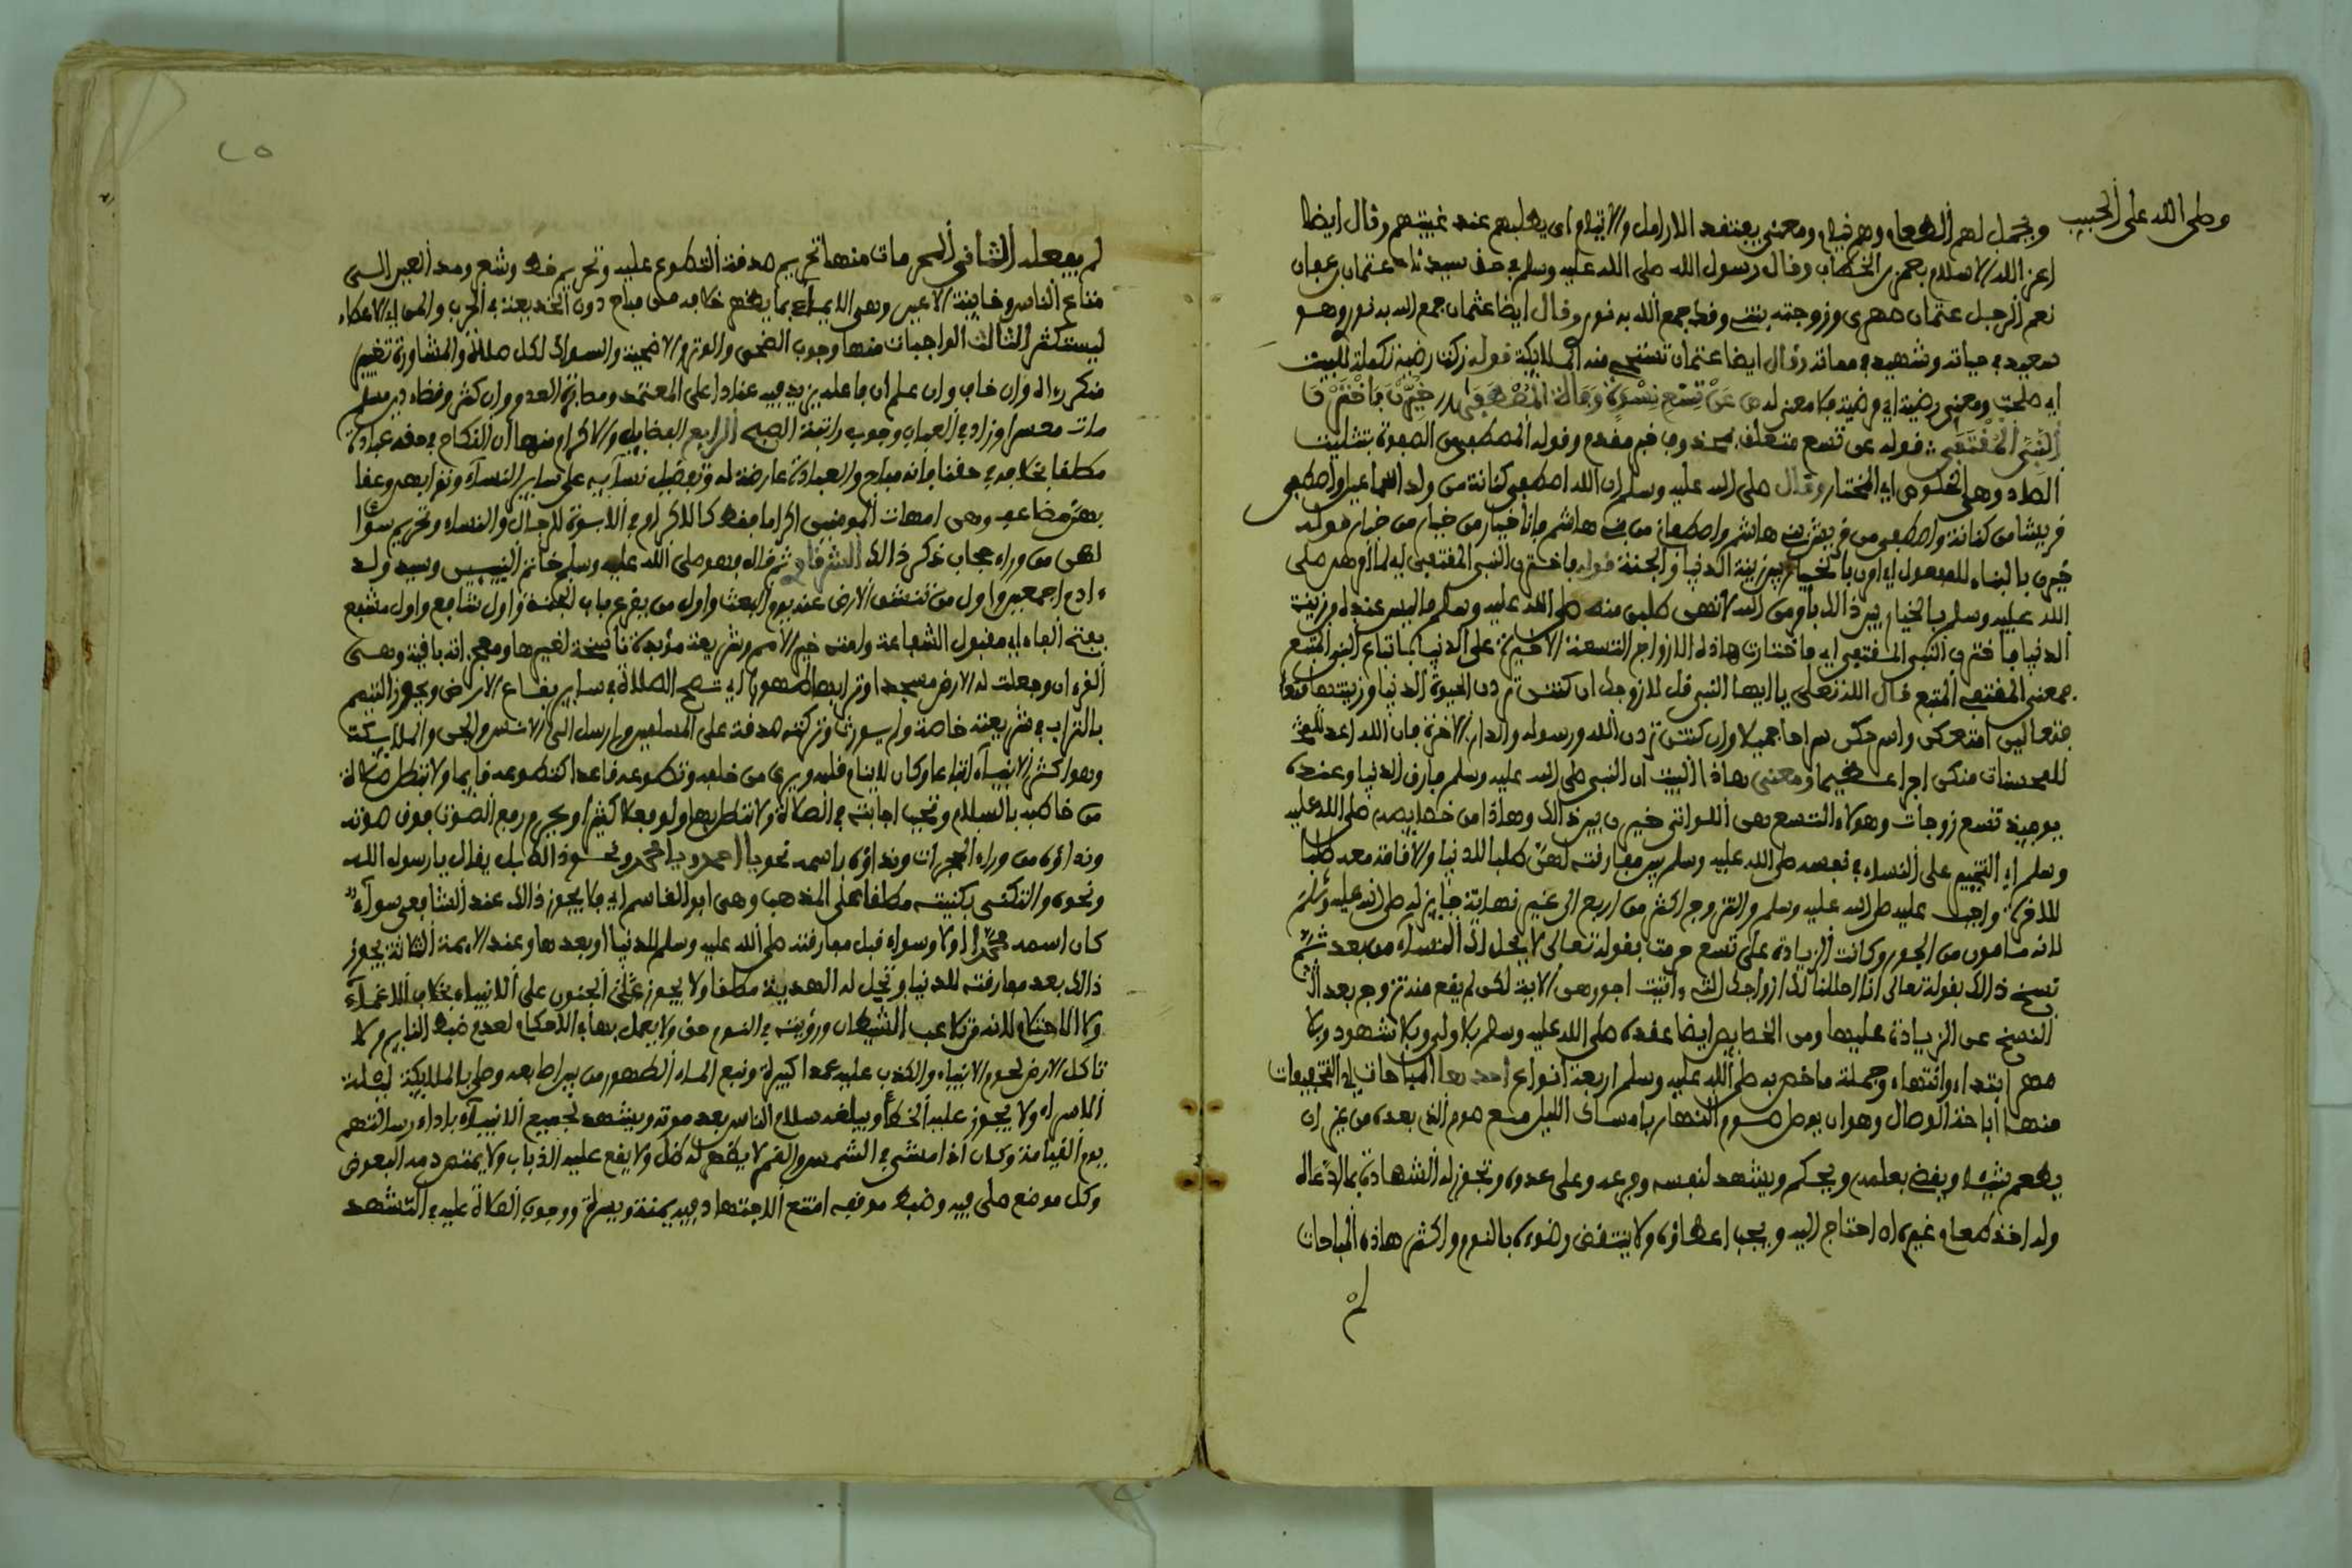 وصلى الله على الحبيب
ويحمل لهم الطعام وهم نيام ومعنى يفتقد الارامل والايتام اى يطلبهم عند غيبتهم وقال ايضا
اعز الله الاسلام بعمر بن الخطاب وقال رسول الله صلى الله عليه وسلم في حق سيدنا عثمان بن عفان
نعم الرجل عثمان صهرى وزوجته بنتى وقد جمع الله به نورى وقال ايضا عثمان جمع الله به نورى وهو
سعيد في حياته وشهيد في مماته وقال ايضا عثمان تستحى منه الملايكة قوله زكت رضية تكملة للبيت
اى صلحت ومعنى رضية اى مرضية
عن تسع نسوة وفات المصطفى خيرن فاخترن
النبى المقتفى قوله عن تسع متعلق وقوله المصطفى من الصفوة بتثليث
الصاد وهى الخلوص اى المختار وقال صلى الله عليه وسلم ان الله اصطفى كنانة من ولد اسماعيل واصطفى
قريشا من كنانة واصطفى من قريش بنى هاشم واصطفانى من بنى هاشم فانا خيار من خيار من خيار قوله
خيرن بالبناء للمفعول اى بين زينة الدنيا والجنة قوله فاخترن النبى المقتفى اى لما امر صلى
الله عليه وسلم بالخيار بين ذالك بامر من الله لانهن طلبن منه صلى الله عليه وسلم ما ليس عنده من زينة
الدنيا فاخترن النبى المقتفى اى فاختارت هاذه الازواج التسعة الاخيرة على الدنيا باتباع النبى المتبع
فمعنى المقتفى المتبع قال الله تعلى يا ايها النبى قل لازواجك ان كنتن تردن الحيوة الدنيا وزينتها
فتعالين امتعكن واسرحكن سراحا جميلا وان كنتن تردن الله ورسوله والدار الاخرة فان الله اعد
للمحسنات منكن اجرا عظيما ومعنى هاذا البيت ان النبى صلى الله عليه وسلم فارق الدنيا وعنده
يوميذ تسع زوجات وهؤلاء التسع هى اللواتى خيرن بين ذالك وهاذا من خصايصه صلى الله عليه
وسلم اى التخيير على النساء في نفسه صلى الله عليه وسلم بين مفارقته لهن طلبا للدنيا والاقامة معه طلبا
للاخرة واجب عليه صلى الله عليه وسلم والتزوج اكثر من اربع الى غير نهاية جايز له صلى الله عليه وسلم
لانه مامون من الجور وكانت الزيادة على تسع حرمت بقوله تعالى لا يحل لك النساء من بعد ثم
نسخ ذالك بقوله تعالى انا احللنا لك ازواجك التى ءاتيت اجورهن الاية لكن لم يقع منه تزوج بعد
النسخ عن الزيادة عليها ومن الخصايص ايضا عقده صلى الله عليه وسلم بلا ولى وبلا شهود وبلا
مهر ابتداء وانتهاء وجملة ما خص به صلى الله عليه وسلم اربعة انواع احدها المباحات اى التخفيفات
منها اباحة الوصال وهو ان يوصل صوم النهار بامساك الليل مع صوم الذى بعده من غير ان
يطعم شيئا ويقضى بعلمه ويحكم ويشهد لنفسه وفرعه وعلى عدوه وتجوز له الشهادة بما ادعاه
وله اخذ طعام غيره اه احتاج اليه ويجب اعطاؤه ولا ينتقض وضوءه بالنوم واكثر هاذه المباحات
لم
٢٥
لم يفعله الثانى المحرمات منها تحريم صدقة التطوع عليه وتحريم خط وشعر ومد العين الى
متاع الناس وخاينة الاعين وهى الايماء بما يظهر خلافه من مباح دون الخديعة في الحرب والمن اى الاعطاء
ليستكثر الثالث الواجبات منها وجوب الضحى والوتر والاضحية والسواك لكل صلاة والمشاورة وتغيير
منكر رءاه وان خاف وان علم ان فاعله يزيد فيه عنادا على المعتمد ومصابرة العدو وان كثر وقضاء دين مسلم
مات معسرا وزاد في العباب وجوب راتبة الصبح الرابع الفضايل والاكرام منها ان النكاح في حقه عبادة
مطلقا بخلافه في حقنا فانه مباح والعبادة عارضة له وتفضيل نسآيه على ساير النسآء وثوابهن وعقا
بهن مضاعف وهن امهات المومنين اكراما فقط كالاكرام في الابوة للرجال والنساء وتحريم سؤا
لهن من وراء حجاب ذكر ذالك الشرقاوى ثم قال وهو صلى الله عليه وسلم خاتم النبيين وسيد ولد
ءادم اجمعين واول من تنشق الارض عنه يوم البعث واول من يقرع باب الجنة واول شافع واول مشفع
بفتح الفاء اى مقبول الشفاعة وامته خير الامم وشريعته مؤيدة ناسخة لغيرها ومعجزاته باقية وهى
القرءان وجعلت له الارض مسجدا وترابها طهورا اى تصح الصلاة في ساير بقاع الارض ويجوز التيمم
بالتراب في شريعته خاصة ولم يورث وتركته صدقة على المسلمين وارسل الى الانس والجن والملايكة
وهو اكثر الانبيآء اتباعا وكان لاينام قلبه ويرى من خلفه وتطوعه قاعدا كتطوعه قايما ولا تبطل صلاة
من خاطبه بالسلام وتجب اجابته في الصلاة ولا تبطل بها ولو بفعل كثير ويحرم رفع الصوت فوق صوته
ونداؤه من وراء الحجرات ونداؤه باسمه نحو يا احمد ويا محمد ونحو ذالك بل يقال يا رسول الله
ونحوه والتكنى بكنيته مطلقا على المذهب وهى ابو القاسم اى فلا يجوز ذالك عند الشافعى سوآء
كان اسمه محمدا اولا وسواء قبل مفارقته صلى الله عليه وسلم للدنيا او بعدها وعند الايمة الثلاثة يجوز
ذالك بعد مفارقته للدنيا وتحل له الهدية مطلقا ولا يجوز الجنون على الانبياء بخلاف الاغمآء
ولا الاحتلام لانه من تلاعب الشيطان ورؤيته في النوم حق ولا يعمل بها في الاحكام لعدم ضبط النايم ولا
تاكل الارض لحوم الانبياء والكذب عليه عمدا كبيرة ونبع الماء الطهور من بين اصابعه وصلى بالملايكة ليلة
الاسراء ولا يجوز عليه الخطأ ويبلغه سلام الناس بعد موته ويشهد لجميع الانبيآء باداء رسالتهم
يوم القيامة وكان اذا مشى في الشمس والقمر لا يظهر له ظل ولا يقع عليه الذباب ولا يمتص دمه البعوض
وكل موضع صلى فيه وضبط موقفه امتنع الاجتهاد فيه يمنة ويسرة ووجوب الصلاة عليه في التشهد